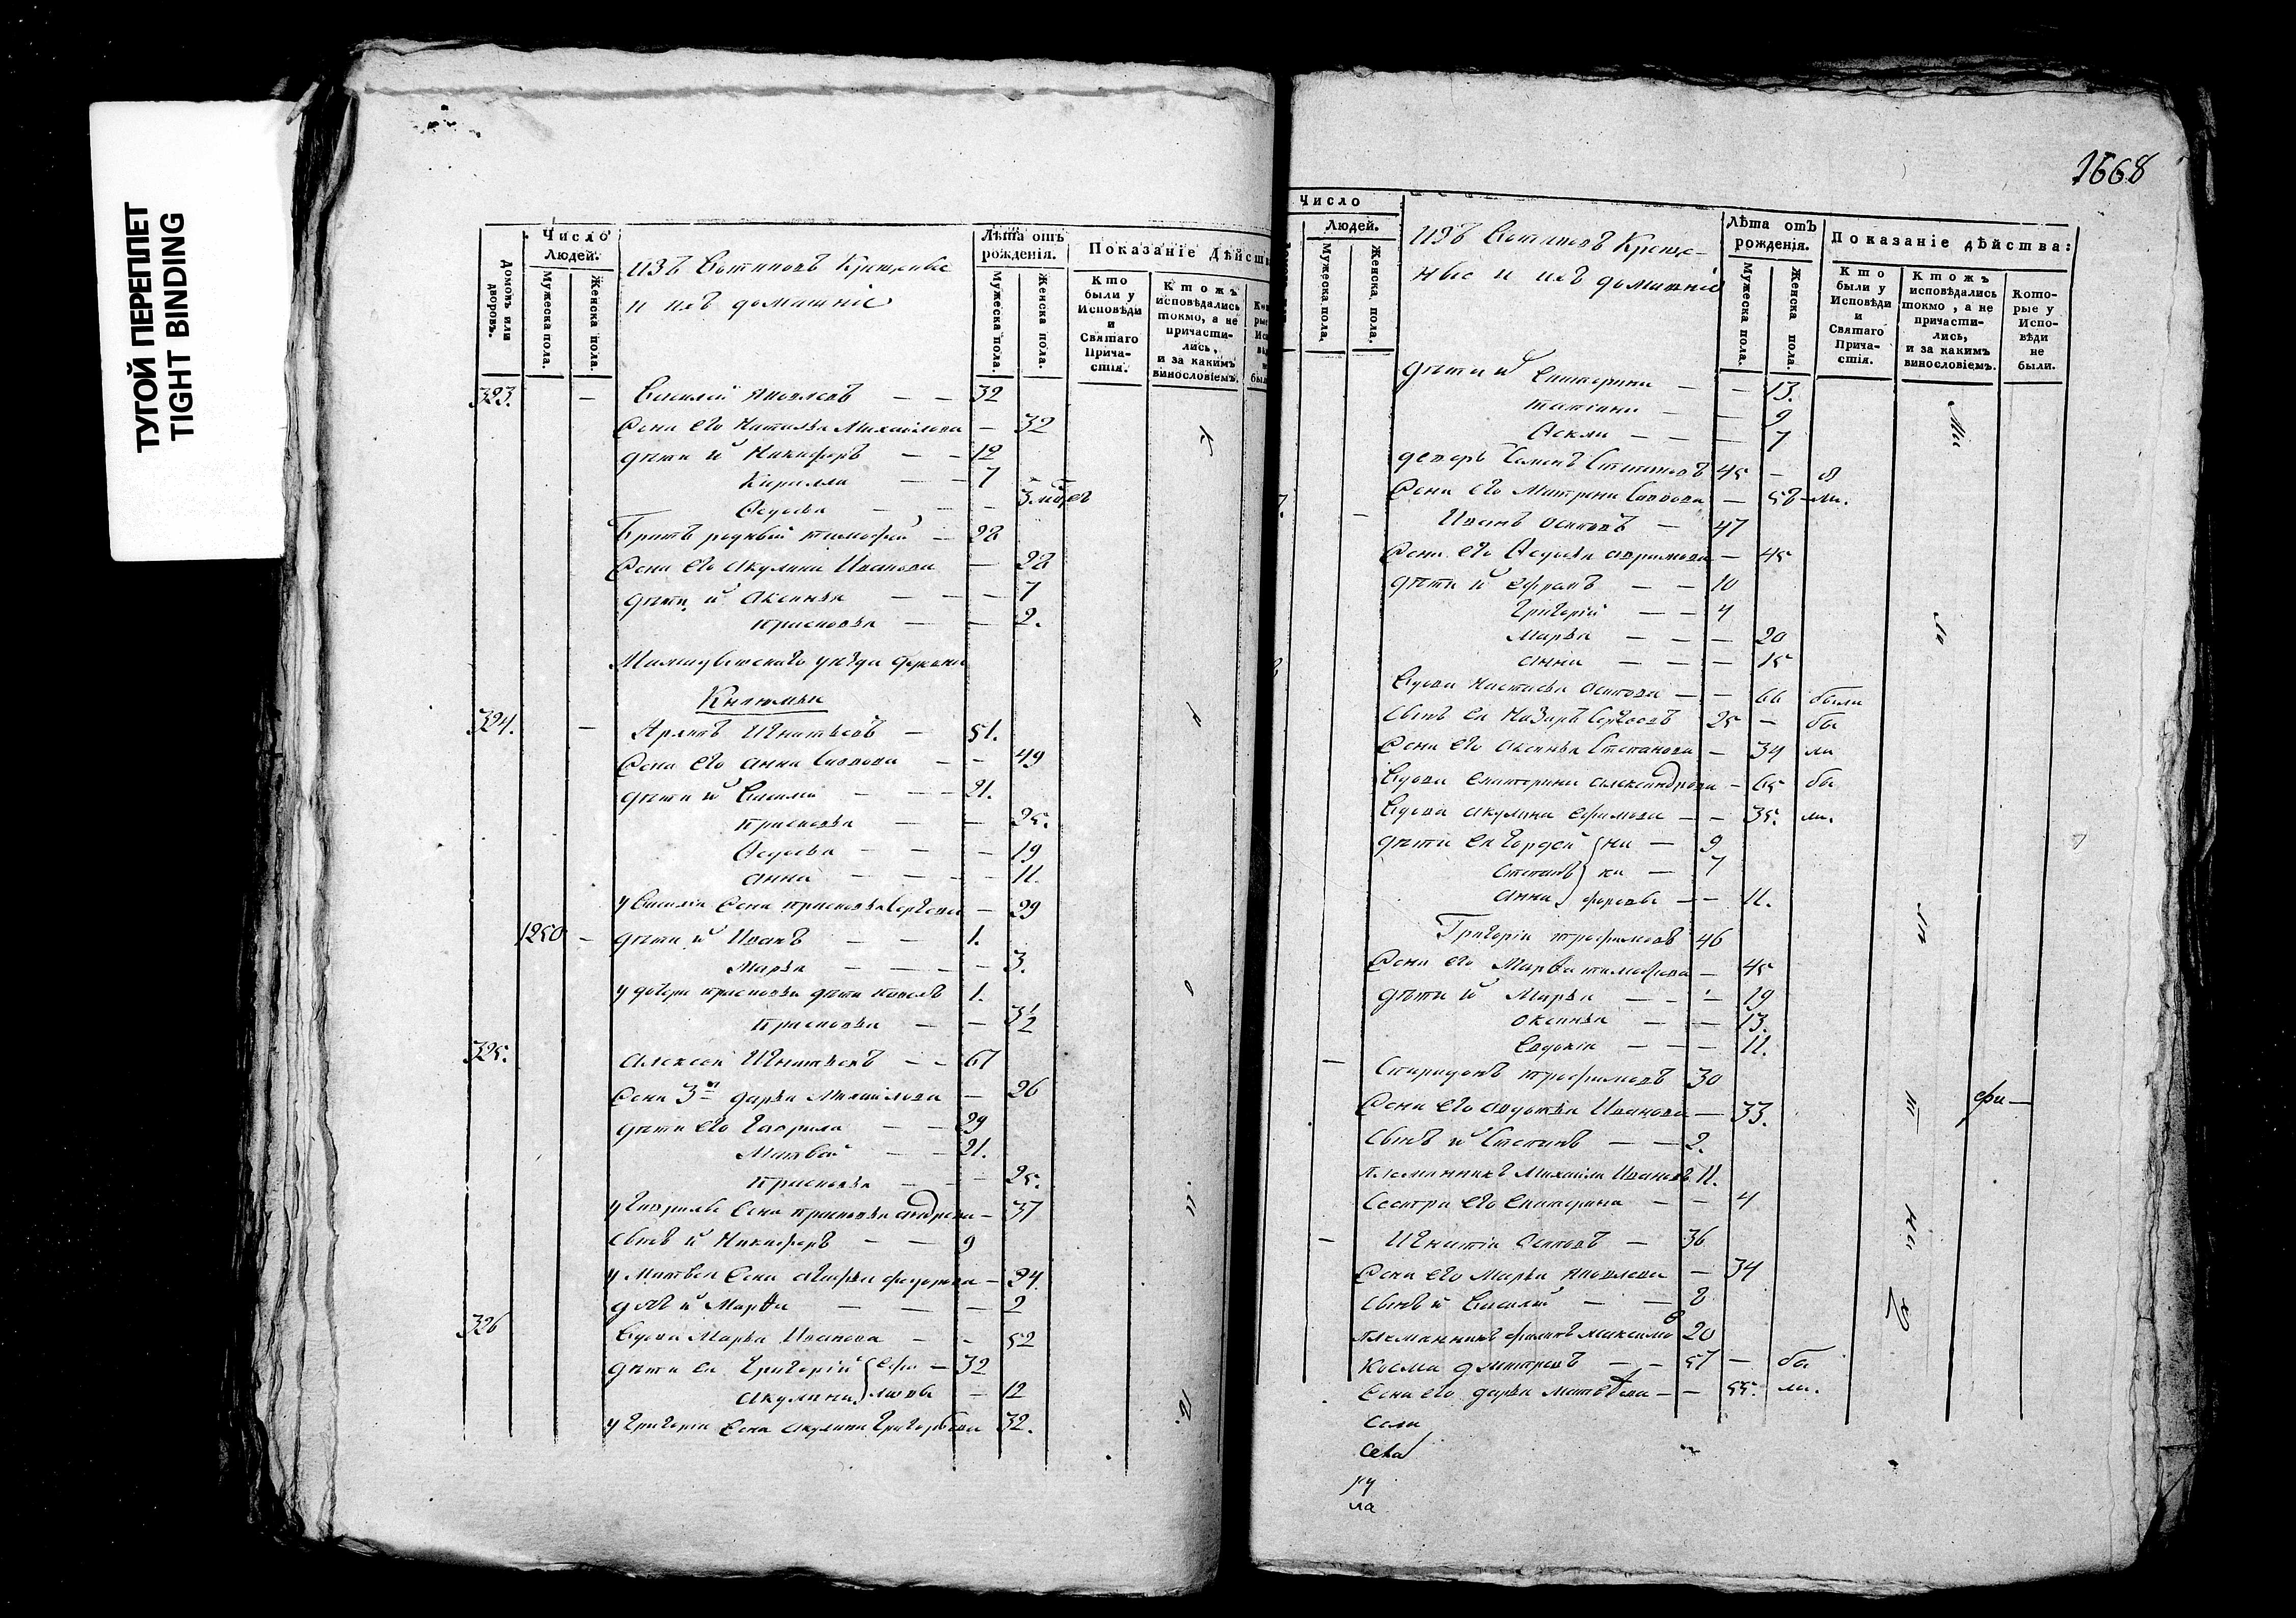 ТУГОЙ ПЕРЕПЛЕТ
TIGHT BINDING
Домовъ или дворовъ.
Число Людей.
Мужеска пола.
Женска пола.
изъ Вотяковъ Крещеные
и ихъ домашніе
Лѣта отъ рожденія.
Мужеска пола.
Женска пола.
Показаніе Дѣйст
Кто были у Исповѣди и Святаго Прича-стія.
Ктожъ исповѣдались токмо, а не причасти-лись, и за какимъ винословіемъ.
323. — Василій Яковлевъ — — 32
Жена его Наталья Михайлова — 32
дѣти и Никифоръ — — 12
Кирилла — — 7
Авдотья — — 3 мѣсе
Братъ родный Тимофей — 28
Жена его Акулина Иванова — 28
дѣти и Аксинья — — — 7
Прасковья — — 2.
Малмыжскаго уѣзда
324. — Архипъ Игнатьевъ — 51.
Жена его Анна Саввова — — 49
дѣти и Василій — — — 21.
Прасковья — — 25.
Авдотья — — — 19
Анна — — — — 11.
у Василія Жена Прасковья Сергеева — 29
1250 — дѣти и Иванъ — — 1.
Марья — — — — 3.
у дочери Прасковьи дѣти 1.
Прасковья — — 3 1/2
325. Алексей Игнатьевъ — — 67
Жена 3я Дарья Михайлова — 26
дѣти его Гаврила — — 29
Матвей — — 21.
Прасковья — — 25.
у Гаврилы Жена Прасковья Андреева — 37
Сынъ и Никифоръ — — 9
у Матвея Жена Агафья Федорова — 24.
дочь и Марѳа — — — 2
326 Вдова Марья Иванова — — 52
дѣти ея Григорій Ефи — 32
Акулина мовы — 12
у Григорія Жена Акулина Григорьева 32.
1668
Число
Людей.
Мужеска пола.
Женска пола.
изъ Вотяковъ Креще-
ные и ихъ домашніе
Лѣта отъ рожденія.
Мужеска пола.
Женска пола.
Показаніе дѣйства:
Кто были у Исповѣди и Святаго Прича-стія.
Ктожъ исповѣдались токмо, а не причасти-лись, и за какимъ винословіемъ.
Кото-рые у Испо-вѣди не были.
дѣти и Екатерина — — 13.
Татьяна — — 9
Ѳекла — — — 7
Семенъ Степановъ 45 —
Жена его Матрена Саввова — 58
— Иванъ Осиповъ — 47
Жена его Авдотья Абрамова — 45
дѣти и Ефремъ — — 10
Григорій — — 4
Марья — — — 20
Анна — — — 15
Вдова Настасья Осипова — — 66 были
Сынъ ея Назаръ Сергеевъ 25 — бы
Жена его Аксинья Степанова — 34 ли
Вдова Екатерина Александрова — 65 бы
Вдова Акулина Ефимова — — 35. ли.
дѣти ея Гордей Ни — 9
Степанъ ки — 7
Анна форовы — — 11.
Григорій Трофимовъ 46
Жена его Марѳа Тимофеева — 45
дѣти и Марья — — — 19
Оксинья — — 13.
Евдокія — — — 11.
— Спиридонъ Трофимовъ 30
Жена его Авдотья Иванова — 33.
Сынъ и Степанъ — — 2.
Племянникъ Михайла Ивановъ 11.
Сестра его Екатерина — — 4
— Игнатій Осиповъ — 36
Жена его Марья Яковлева — 34
Сынъ и Василій — — 8
Племянникъ Филипъ Максимовъ 20
Косма Дмитревъ — — 57 — бы
Жена его Дарья Матвеева — — 55. ли.